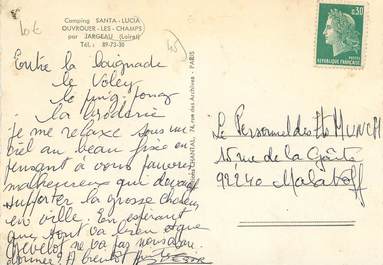 lot
Camping SANTA-LUCIA
OUVROUER-LES-CHAMPS
par JARGEAU (Loiret)
Tél.: 89-73-30
45
0,30
Entre la baignade
le Voley
le ping-pong
la broderie
je me relaxe sous un
ciel au beau fixe en
pensant à vous pauvres
malheureux qui devez
supporter la grosse chaleur
en ville. En espérant
que tout va bien et que
ne va pas nous
donner? A bientôt
Le Personnel des Ets MUNCH
15, rue de la
92240 Malakoff
CHANTAL, 74, rue des Archives - PARIS